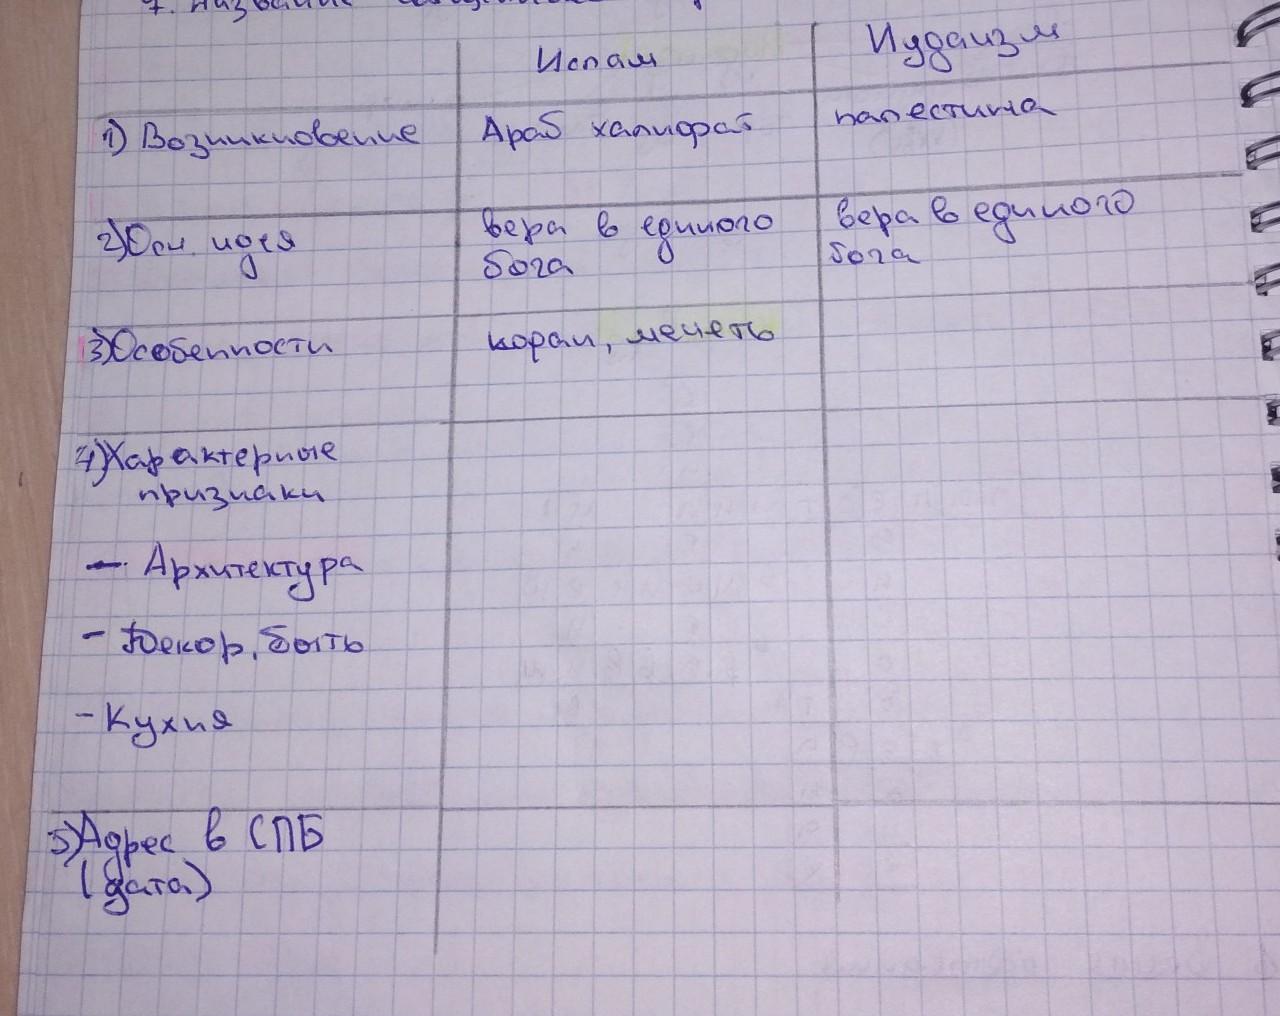 7. Название
Ислам
Иудаизм
1) Возникновение
Араб халифат
палестина
2) Осн. идея
вера в единого
бога
вера в единого
бога
3) Особенности
коран, мечеть
4) Характерные
признаки
— Архитектура
- Декор, быть
- Кухня
5) Адрес в СПБ
(дата)